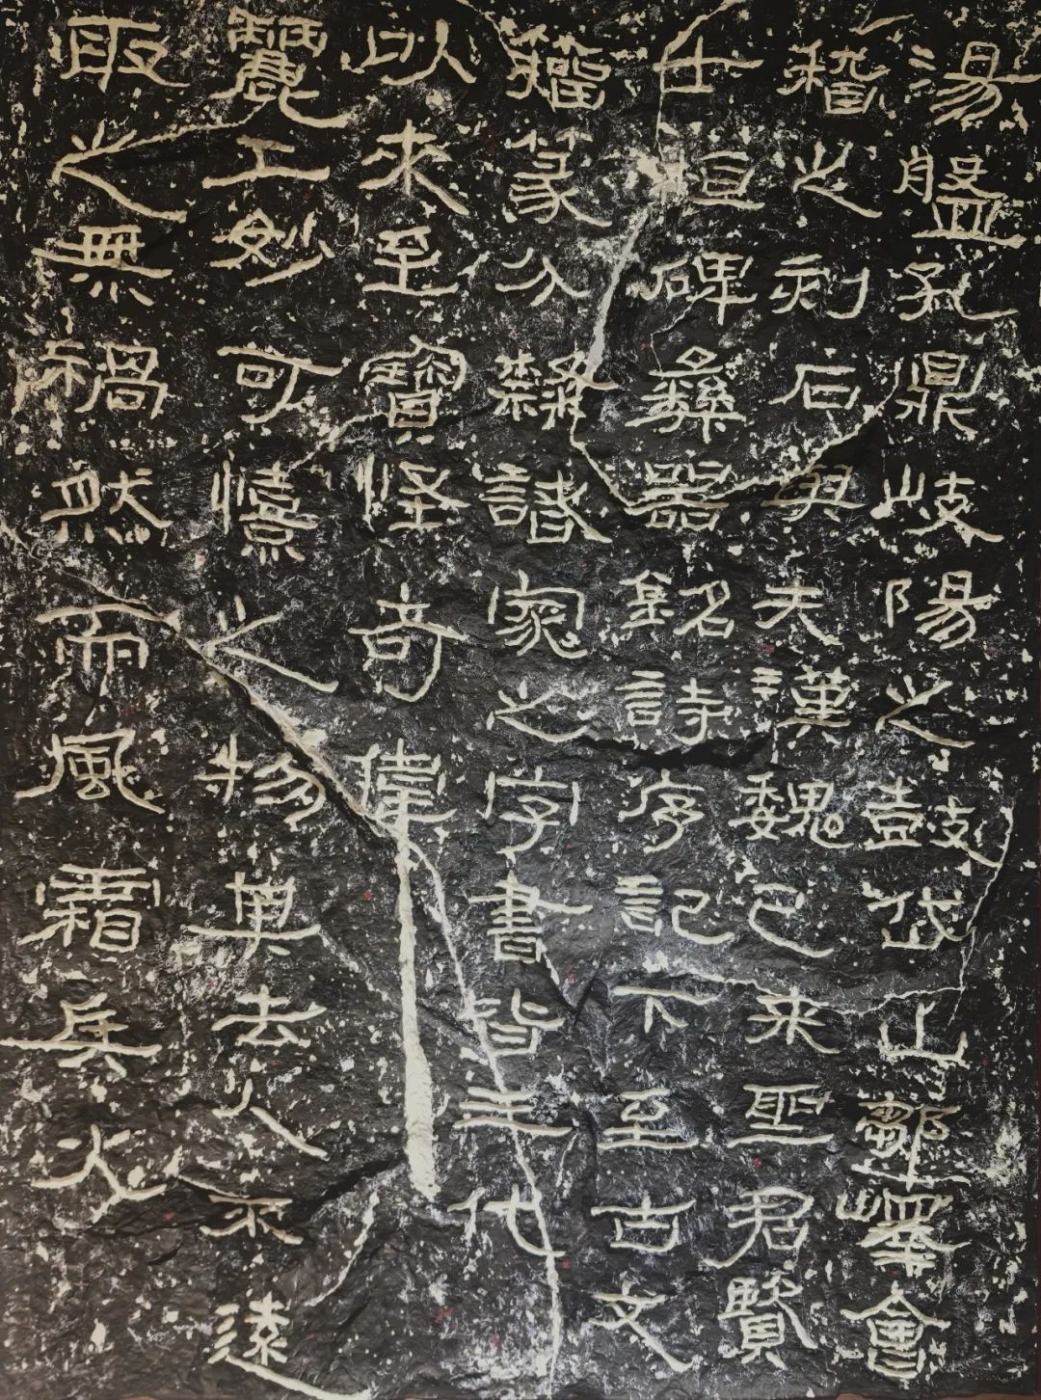 湯盤孔鼎岐陽之鼓岱山鄒嶧會
稽之刻石與夫漢魏已来聖君賢
士桓碑彝器銘詩序記下至古文
籀篆分隸諸家之字書皆三代
以來至寶怪奇偉
麗工妙可憙之物其去人不遠
取之無禍然而風霜兵火